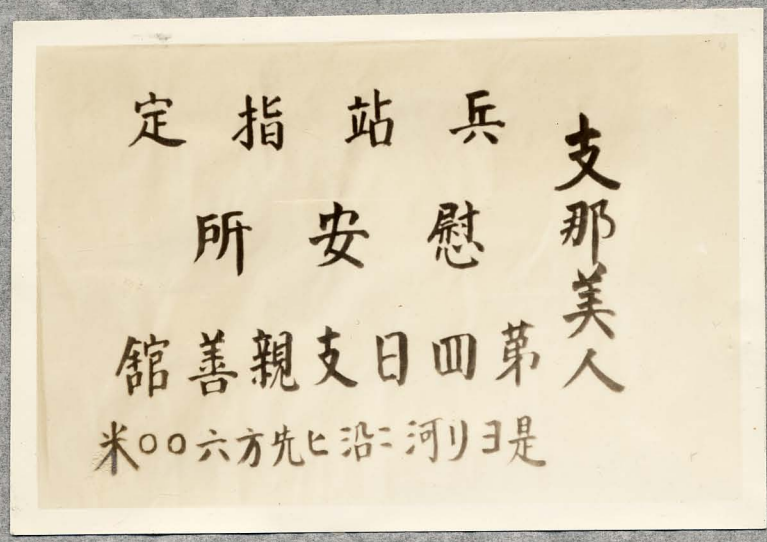 支那美人
兵站指定
慰安所
第四日支親善館
是ヨリ河ニ沿ヒ先方六〇〇米